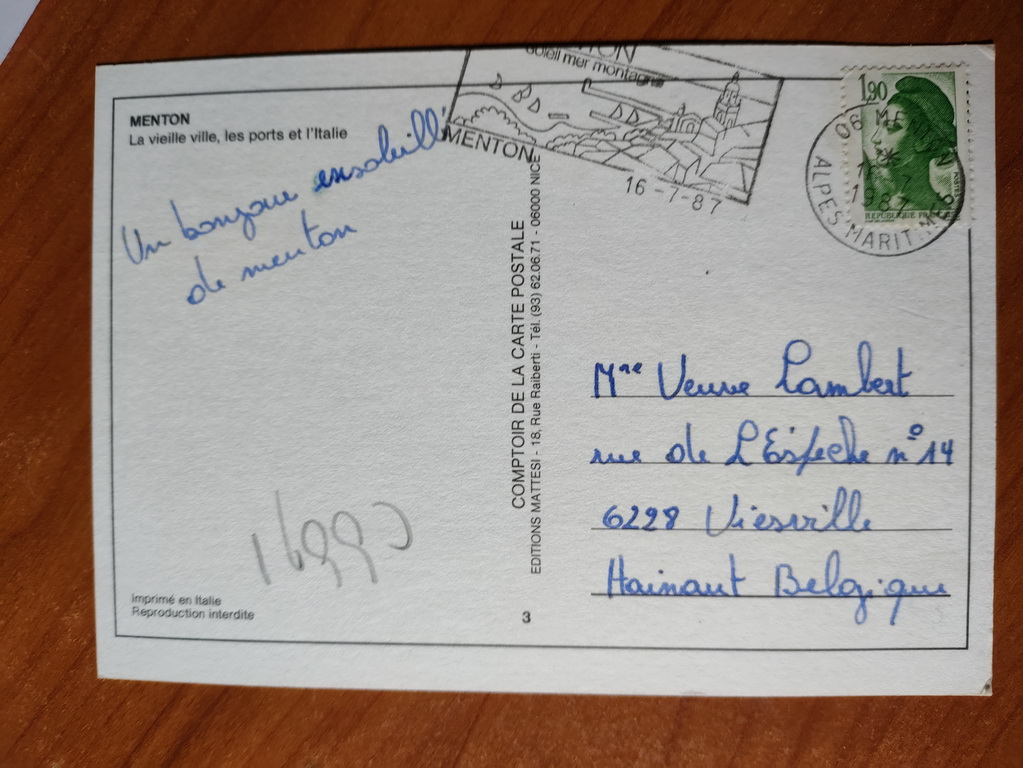 MENTON
La vieille ville, les ports et l'Italie
Un bonjour ensoleillé
de menton
Imprimé en Italie
Reproduction interdite
COMPTOIR DE LA CARTE POSTALE
EDITIONS MATTESI - 18, Rue Raiberti - Tél. (93) 62.06.71 - 06000 NICE
3
soleil mer montagne
MENTON
16-7-87
1,90
REPUBLIQUE FRANÇAISE
POSTES
06 MENTON
1987
ALPES MARITIMES
Mme Veuve Lambert
rue de L'Espeche n° 14
6228 Viesville
Hainaut Belgique